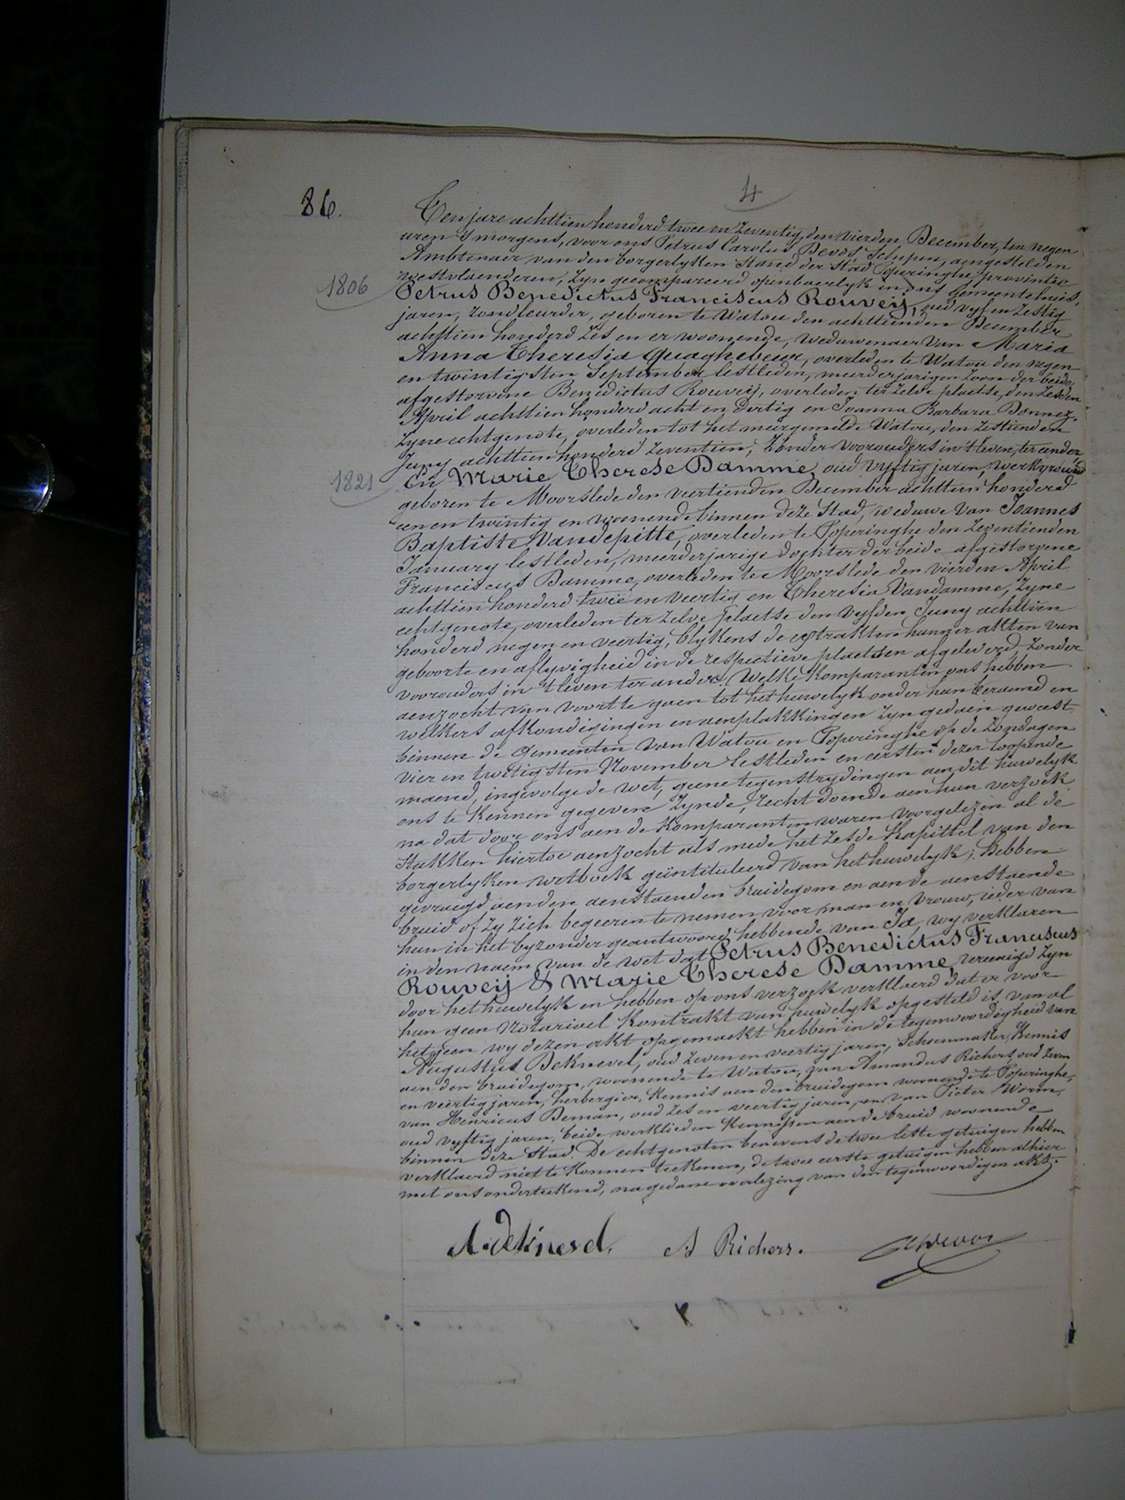 4
86.
Ten jare achttien honderd twee en zeventig, den vierden December, ten negen
uren 's morgens, voor ons Petrus Carolus Devos, Schepen, aengestelden
Ambtenaer van den borgerlyken Stand der Stad Poperinghe, provintie
westvlaenderen, zyn gecompareerd openbaerlyk in ons Gemeentehuis,
1806
Petrus Benedictus Franciscus Rouveÿ, oud vyf en zestig
jaren, geboren te Watou den achttienden December
achttien honderd zes en er woonende, weduwenaer van Maria
Anna Theresia Quaghebeur, overleden te Watou den negen
en twintigsten September lestleden, meerderjarigen zoon der beide
afgestorvene Benedictus Rouveÿ, overleden ter zelve plaetse, den zesden
April achttien honderd acht en dertig en Joanna Barbara Bonnez,
zyne echtgenote, overleden tot het meergemelde Watou, den zestienden
Juny achttien honderd zeventien, zonder voorouders in 't leven, ter eender
1821
En Marie Therese Damme, oud vyftig jaren, werkvrouw
geboren te Moorslede den viertienden December achttien honderd
een en twintig en woonende binnen deze Stad, weduwe van Joannes
Baptiste Vandepitte, overleden te Poperinghe den zeventienden
January lestleden, meerderjarige dochter der beide afgestorvene
Franciscus Damme, overleden te Moorslede den vierden April
achttien honderd twee en veertig en Theresia Vandamme, zyne
echtgenote, overleden ter zelve plaetse den vyfden Juny achttien
honderd negen en veertig, blykens de extrakten hunner akten van
geboorte en aflyvigheid in de respectieve plaetsen afgeleverd, zonder
voorouders in 't leven ter ander; Welke Komparanten ons hebben
aenzocht van voort te gaen tot het huwelyk onder hun beraemd en
welkers afkondigingen en aenplakkingen zyn gedaen geweest
binnen de Gemeenten van Watou en Poperinghe op de Zondagen
vier en twintigsten November lestleden en eersten dezer loopende
maend, ingevolge de wet, geene tegenstrydingen aen dit huwelyk
ons te kennen gegeven zynde, recht doende aen hun verzoek
na dat door ons aen de Komparanten waren voorgelezen al de
stukken hiertoe aenzocht als mede het zesde Kapittel van den
borgerlyken wetboek geïntituleerd van het huwelyk; Hebben
gevraegd aen den aenstaenden bruidegom en aen de aenstaende
bruid of zy zich begeeren te nemen voor man en vrouw, ieder van
hun in het byzonder geantwoord hebbende van Ja, wy verklaren
in den naem van de wet dat Petrus Benedictus Franciscus
Rouveÿ & Marie Therese Damme, vereenigd zyn
door het huwelyk en hebben op ons verzoek verklaerd dat er voor
hun geen Notarieel Kontrakt van huwelyk opgesteld is van al
hetgeen wy dezen akt opgemaekt hebben in de tegenwoordigheid van
Augustus Deknevel, oud zeven en veertig jaren, Schoenmaker, Kennis
aen den bruidegom, woonende te Watou, van Amandus Richers, oud zeven
en veertig jaren, herbergier, Kennis aen den bruidegom woonende te Poperinghe,
van Henricus Deman, oud zes en veertig jaren, en van Pieter Worm,
oud vyftig jaren, beide werklieden Kennissen aen de bruid woonende
binnen deze Stad. De echtgenoten benevens de twee leste getuigen hebben
verklaerd niet te konnen teekenen, de twee eerste getuigen hebben alhier
met ons onderteekend, na gedane overlezing van den tegenwoordigen akt.
A. deknevel. A Richers. Devos